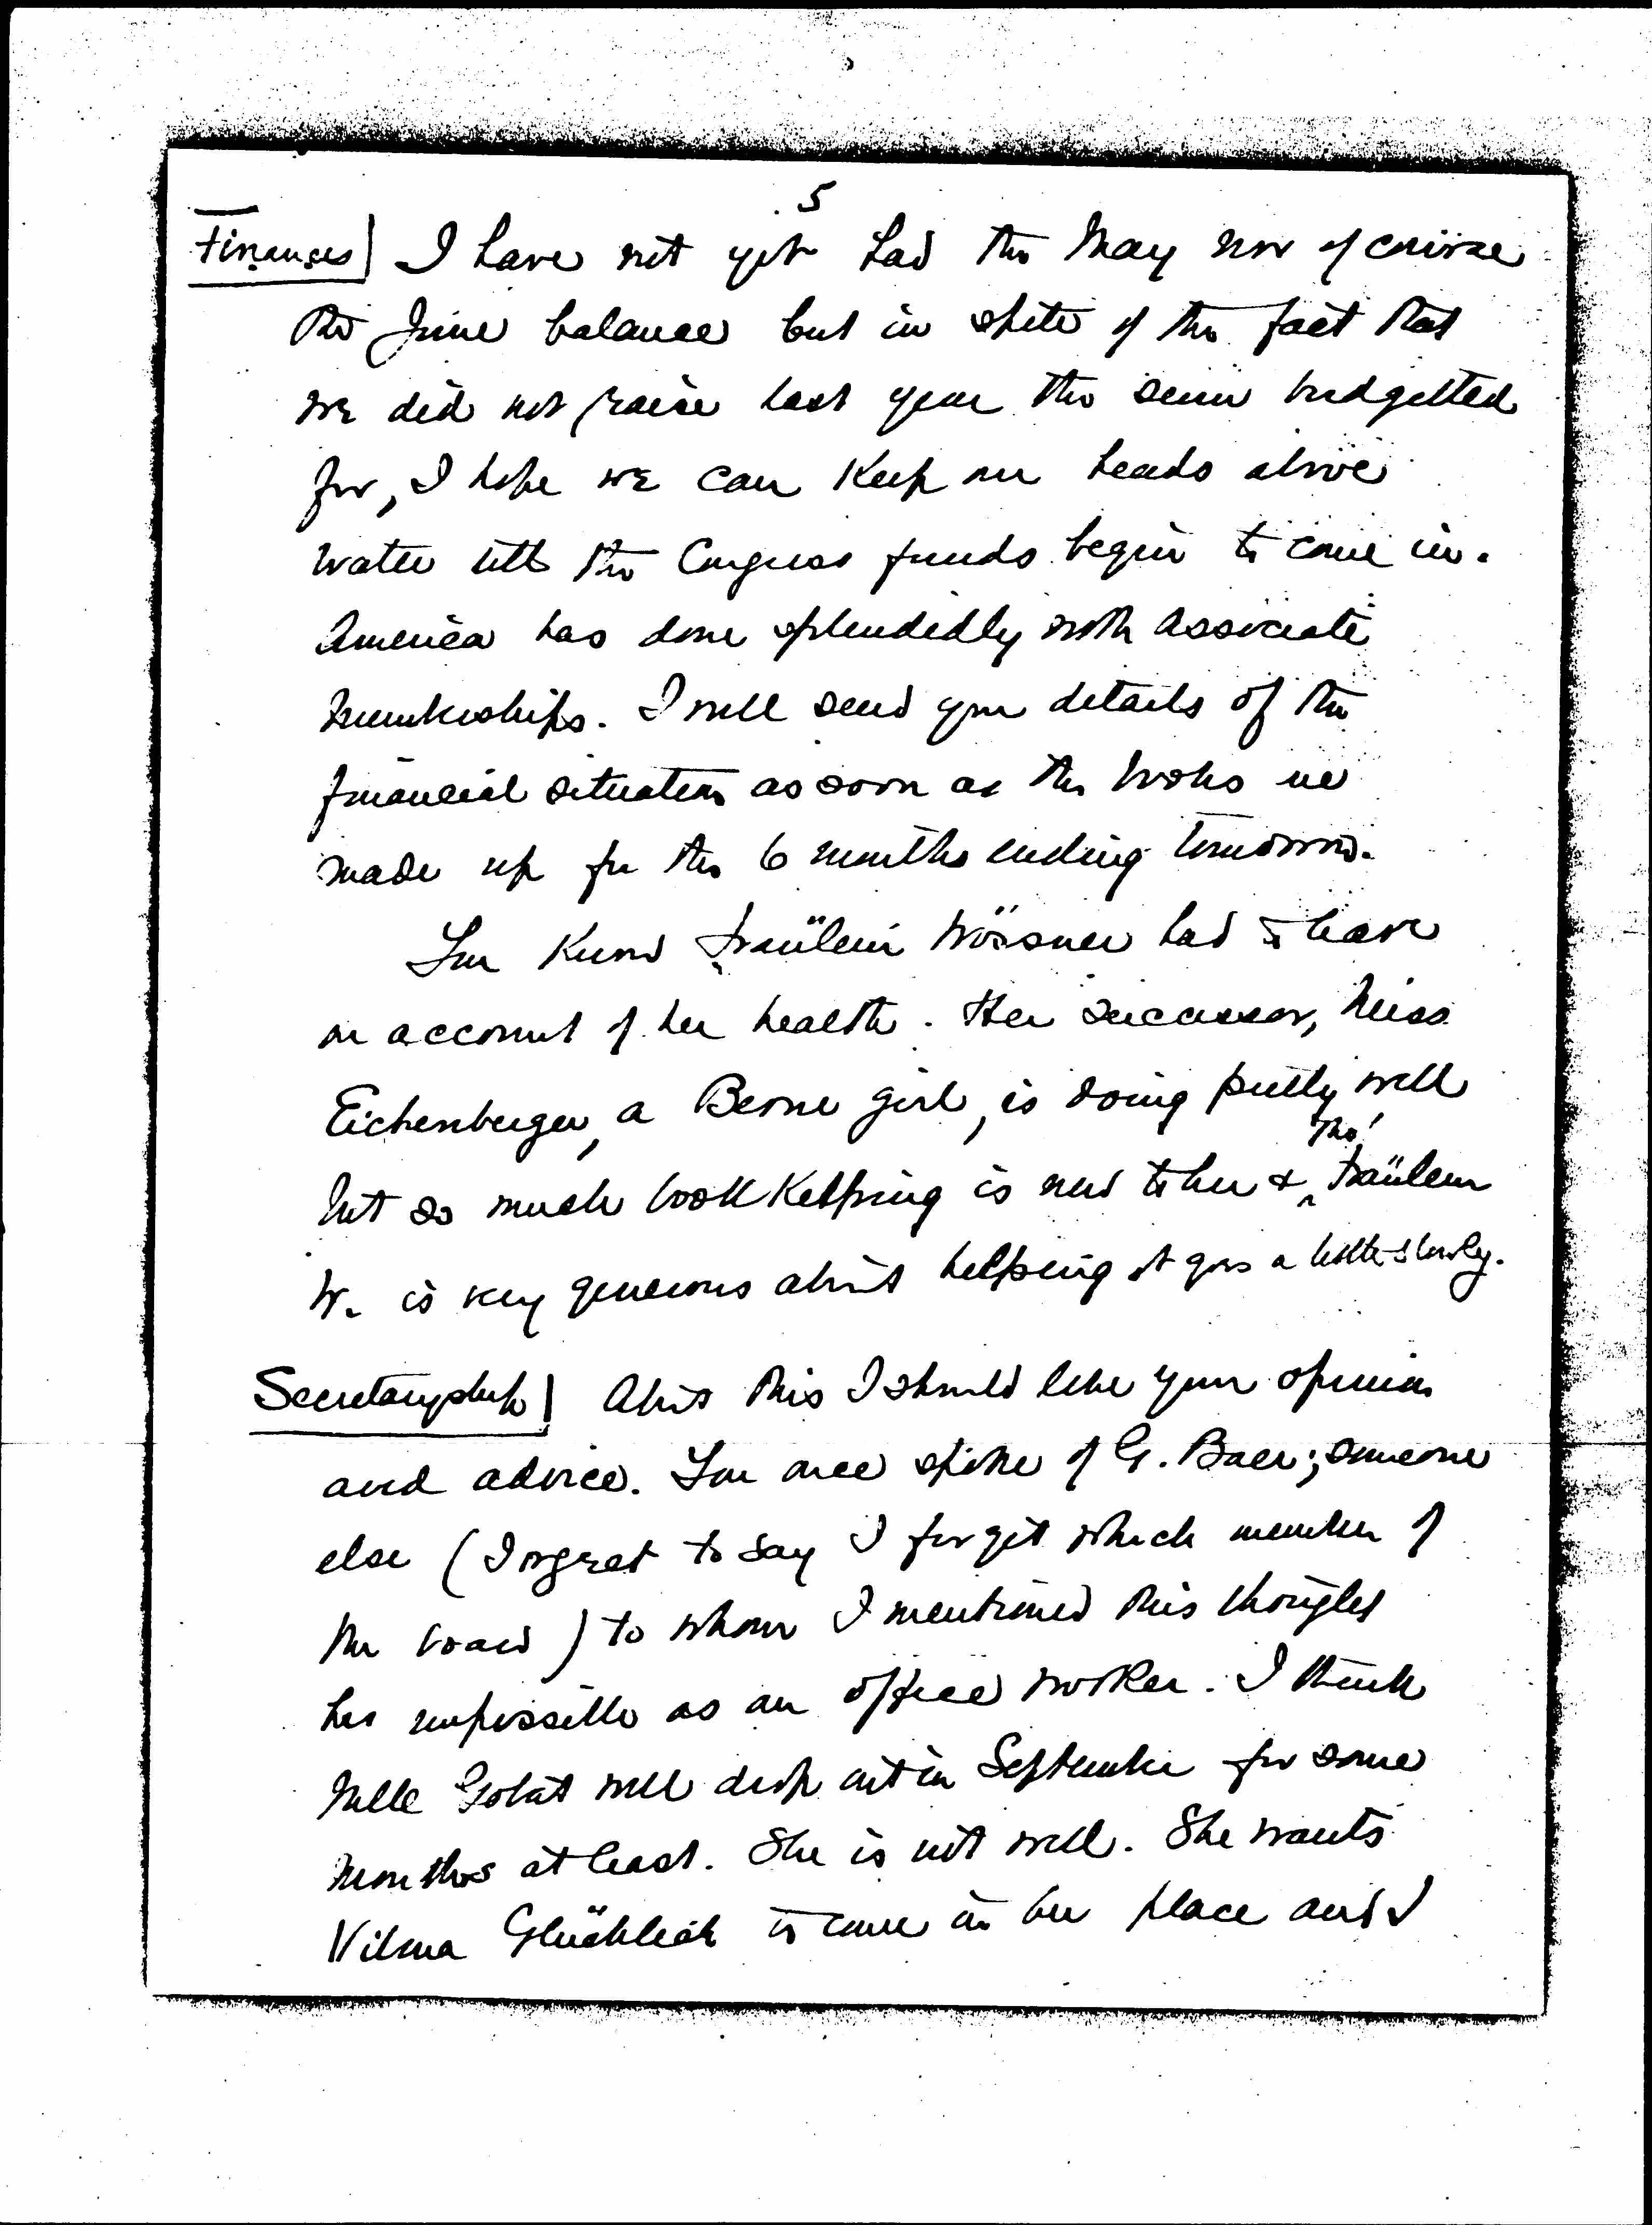 5
Finances] I have not yet had the May nor of course
the June balance but in spite of the fact that
we did not raise last year the sum budgetted
for, I hope we can keep our heads above
water till the Congress funds begin to come in.
America has done splendidly with associate
memberships. I will send you details of the
financial situation as soon as the books are
made up for the 6 months ending tomorrow.
You know Fräulein Wössner had to leave
on account of her health. Her successor, Miss
Eichenberger, a Berne girl, is doing pretty well
but so much bookkeeping is new to her & tho' Fräulein
W. is very generous about helping it goes a little slowly.
Secretaryship] About this I should like your opinion
and advice. You once spoke of G. Baer; someone
else (I regret to say I forget which member of
the board) to whom I mentioned this thought
her impossible as an office worker. I think
Mlle Gobat will drop out in September for some
months at least. She is not well. She wants
Vilma Glücklich to come in her place and I